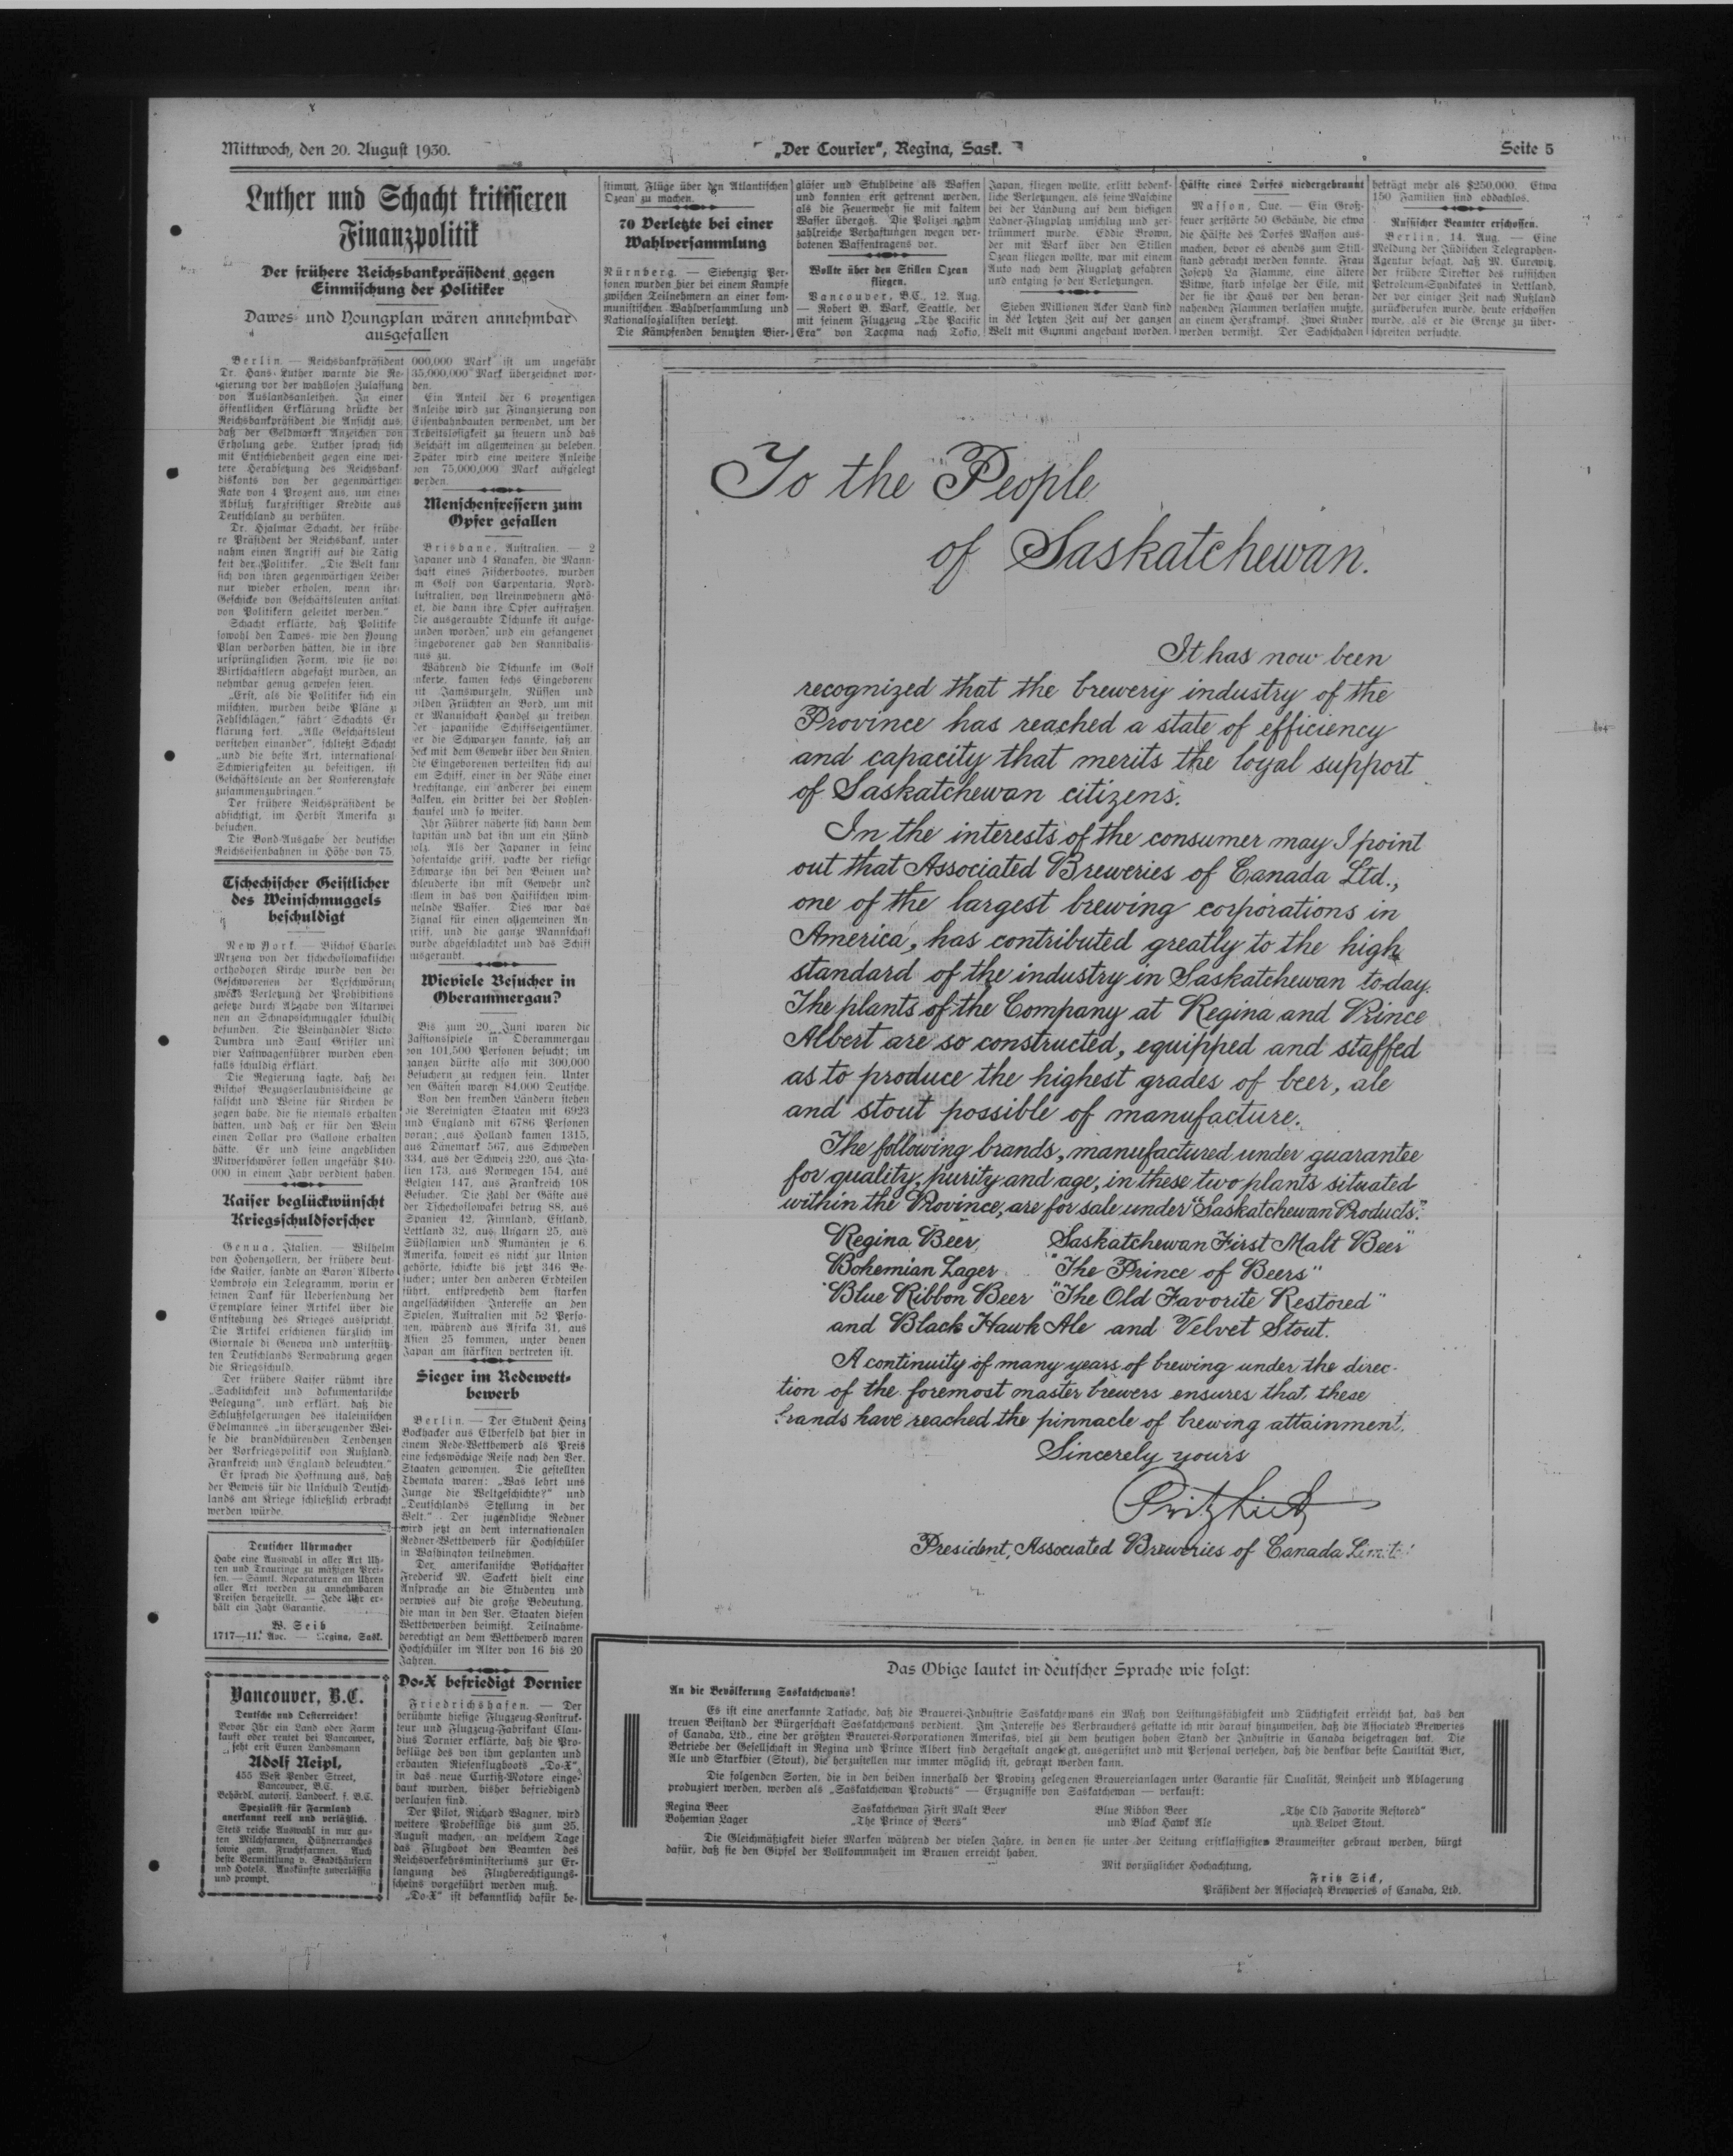 Mittwoch, den 20. August 1930.
„Der Courier“, Regina, Sask.
Seite 5
Luther und Schacht kritisieren
Finanzpolitik
Der frühere Reichsbankpräsident gegen
Einmischung der Politiker
Dawes- und Youngplan wären annehmbar
ausgefallen
Berlin. — Reichsbankpräsident
Dr. Hans Luther warnte die Re-
gierung vor der wahllosen Zulassung
von Auslandsanleihen. In einer
öffentlichen Erklärung drückte der
Reichsbankpräsident die Ansicht aus,
daß der Geldmarkt Anzeichen von
Erholung gebe. Luther sprach sich
mit Entschiedenheit gegen eine wei-
tere Herabsetzung des Reichsbank-
diskonts von der gegenwärtigen
Rate von 4 Prozent aus, um einen
Abfluß kurzfristiger Kredite aus
Deutschland zu verhüten.
Dr. Hjalmar Schacht, der frühe-
re Präsident der Reichsbank, unter
nahm einen Angriff auf die Tätig
keit der Politiker. „Die Welt kann
sich von ihren gegenwärtigen Leiden
nur wieder erholen, wenn ihre
Geschicke von Geschäftsleuten anstat
von Politikern geleitet werden.“
Schacht erklärte, daß Politike
sowohl den Dawes- wie den Young
Plan verdorben hätten, die in ihre
ursprünglichen Form, wie sie von
Wirtschaftlern abgefaßt wurden, an
nehmbar genug gewesen seien.
„Erst, als die Politiker sich ein
mischten, wurden beide Pläne zu
Fehlschlägen,“ fährt Schachts Er
klärung fort. „Alle Geschäftsleut
verstehen einander“, schließt Schacht
„und die beste Art, international
Schwierigkeiten zu beseitigen, ist
Geschäftsleute an der Konferenztafe
zusammenzubringen.“
Der frühere Reichspräsident be
absichtigt, im Herbst Amerika zu
besuchen.
Die Bond-Ausgabe der deutschen
Reichseisenbahnen in Höhe von 75,
000,000 Mark ist um ungefähr
35,000,000 Mark überzeichnet wor-
den.
Ein Anteil der 6 prozentigen
Anleihe wird zur Finanzierung von
Eisenbahnbauten verwendet, um der
Arbeitslosigkeit zu steuern und das
Geschäft im allgemeinen zu beleben.
Später wird eine weitere Anleihe
von 75,000,000 Mark aufgelegt
werden.
Tschechischer Geistlicher
des Weinschmuggels
beschuldigt
New York. — Bischof Charles
Mrzena von der tschechoslowakischen
orthodoxen Kirche wurde von den
Geschworenen der Verschwörung
zwecks Verletzung der Prohibitions
gesetze durch Abgabe von Altarwei
nen an Schnapsschmuggler schuldig
befunden. Die Weinhändler Victor
Dumbra und Saul Grifler und
vier Lastwagenführer wurden eben
falls schuldig erklärt.
Die Regierung sagte, daß der
Bischof Bezugserlaubnisscheine ge
fälscht und Weine für Kirchen be
zogen habe, die sie niemals erhalten
hätten, und daß er für den Wein
einen Dollar pro Gallone erhalten
hätte. Er und seine angeblichen
Mitverschwörer sollen ungefähr $40-
000 in einem Jahr verdient haben.
Kaiser beglückwünscht
Kriegsschuldforscher
Genua, Italien. — Wilhelm
von Hohenzollern, der frühere deut-
sche Kaiser, sandte an Baron Alberto
Lombroso ein Telegramm, worin er
seinen Dank für Uebersendung der
Exemplare seiner Artikel über die
Entstehung des Krieges ausspricht.
Die Artikel erschienen kürzlich im
Giornale di Geneva und unterstütz-
ten Deutschlands Verwahrung gegen
die Kriegsschuld.
Der frühere Kaiser rühmt ihre
„Sachlichkeit und dokumentarische
Belegung“, und erklärt, daß die
Schlußfolgerungen des italeinischen
Edelmannes „in überzeugender Wei-
se die brandschürenden Tendenzen
der Vorkriegspolitik von Rußland,
Frankreich und England beleuchten.“
Er sprach die Hoffnung aus, daß
der Beweis für die Unschuld Deutsch-
lands am Kriege schließlich erbracht
werden würde.
Deutscher Uhrmacher
Habe eine Auswahl in aller Art Uh-
ren und Trauringe zu mäßigen Prei-
sen. — Sämtl. Reparaturen an Uhren
aller Art werden zu annehmbaren
Preisen hergestellt. — Jede Uhr er-
hält ein Jahr Garantie.
W. Seib
1717—11. Ave. — Regina, Sask.
Vancouver, B.C.
Deutsche und Oesterreicher!
Bevor Ihr ein Land oder Farm
kauft oder rentet bei Vancouver,
seht erst Euren Landsmann
Adolf Neipl,
455 West Pender Street,
Vancouver, B.C.
Behördl. autoris. Landverk. f. B.C.
Spezialist für Farmland
anerkannt reell und verläßlich.
Stets reiche Auswahl in nur gu-
ten Milchfarmen, Hühnerranches
sowie gem. Fruchtfarmen. Auch
beste Vermittlung v. Stadthäusern
und Hotels. Auskünfte zuverlässig
und prompt.
Menschenfressern zum
Opfer gefallen
Brisbane, Australien. — 2
Japaner und 4 Kanaken, die Mann-
schaft eines Fischerbootes, wurden
im Golf von Carpentaria, Nord-
australien, von Ureinwohnern getö-
tet, die dann ihre Opfer auffraßen.
Die ausgeraubte Dschunke ist aufge-
funden worden, und ein gefangener
Eingeborener gab den Kannibalis-
mus zu.
Während die Dschunke im Golf
ankerte, kamen sechs Eingeborene
mit Jamswurzeln, Nüssen und
wilden Früchten an Bord, um mit
der Mannschaft Handel zu treiben.
Der japanische Schiffseigentümer,
der die Schwarzen kannte, saß an
Deck mit dem Gewehr über den Knien.
Die Eingeborenen verteilten sich auf
dem Schiff, einer in der Nähe einer
Brechstange, ein anderer bei einem
Balken, ein dritter bei der Kohlen-
schaufel und so weiter.
Ihr Führer näherte sich dann dem
Kapitän und bat ihn um ein Zünd-
holz. Als der Japaner in seine
Hosentasche griff, packte der riesige
Schwarze ihn bei den Beinen und
schleuderte ihn mit Gewehr und
allem in das von Haifischen wim-
melnde Wasser. Dies war das
Signal für einen allgemeinen An-
griff, und die ganze Mannschaft
wurde abgeschlachtet und das Schiff
ausgeraubt.
Wieviele Besucher in
Oberammergau?
Bis zum 20. Juni waren die
Passionsspiele in Oberammergau
von 101,500 Personen besucht; im
ganzen dürfte also mit 300,000
Besuchern zu rechnen sein. Unter
den Gästen waren 84,000 Deutsche.
Von den fremden Ländern stehen
die Vereinigten Staaten mit 6923
und England mit 6786 Personen
voran; aus Holland kamen 1315,
aus Dänemark 567, aus Schweden
334, aus der Schweiz 220, aus Ita-
lien 173, aus Norwegen 154, aus
Belgien 147, aus Frankreich 108
Besucher. Die Zahl der Gäste aus
der Tschechoslowakei betrug 88, aus
Spanien 42, Finnland, Estland,
Lettland 32, aus Ungarn 25, aus
Südslawien und Rumänien je 6.
Amerika, soweit es nicht zur Union
gehörte, schickte bis jetzt 346 Be-
sucher; unter den anderen Erdteilen
führt, entsprechend dem starken
angelsächsischen Interesse an den
Spielen, Australien mit 52 Perso-
nen, während aus Afrika 31, aus
Asien 25 kommen, unter denen
Japan am stärksten vertreten ist.
Sieger im Redewett-
bewerb
Berlin. — Der Student Heinz
Bockhacker aus Elberfeld hat hier in
einem Rede-Wettbewerb als Preis
eine sechswöchige Reise nach den Ver.
Staaten gewonnen. Die gestellten
Themata waren: „Was lehrt uns
Junge die Weltgeschichte?“ und
„Deutschlands Stellung in der
Welt.“ Der jugendliche Redner
wird jetzt an dem internationalen
Redner-Wettbewerb für Hochschüler
in Washington teilnehmen.
Der amerikanische Botschafter
Frederick M. Sackett hielt eine
Ansprache an die Studenten und
verwies auf die große Bedeutung,
die man in den Ver. Staaten diesen
Wettbewerben beimißt. Teilnahme-
berechtigt an dem Wettbewerb waren
Hochschüler im Alter von 16 bis 20
Jahren.
Do-X befriedigt Dornier
Friedrichshafen. — Der
berühmte hiesige Flugzeug-Konstruk-
teur und Flugzeug-Fabrikant Clau-
dius Dornier erklärte, daß die Pro-
beflüge des von ihm geplanten und
erbauten Riesenflugboots „Do-X“,
in das neue Curtiß-Motore einge-
baut wurden, bisher befriedigend
verlaufen sind.
Der Pilot, Richard Wagner, wird
weitere Probeflüge bis zum 25.
August machen, an welchem Tage
das Flugboot den Beamten des
Reichsverkehrsministeriums zur Er-
langung des Flugberechtigungs-
scheins vorgeführt werden muß.
„Do-X“ ist bekanntlich dafür be-
stimmt, Flüge über den Atlantischen
Ozean zu machen.
70 Verletzte bei einer
Wahlversammlung
Nürnberg. — Siebenzig Per-
sonen wurden hier bei einem Kampfe
zwischen Teilnehmern an einer kom-
munistischen Wahlversammlung und
Nationalsozialisten verletzt.
Die Kämpfenden benutzten Bier-
gläser und Stuhlbeine als Waffen
und konnten erst getrennt werden,
als die Feuerwehr sie mit kaltem
Wasser übergoß. Die Polizei nahm
zahlreiche Verhaftungen wegen ver-
botenen Waffentragens vor.
Wollte über den Stillen Ozean
fliegen.
Vancouver, B.C., 12. Aug.
— Robert B. Wark, Seattle, der
mit seinem Flugzeug „The Pacific
Era“ von Tacoma nach Tokio,
Japan, fliegen wollte, erlitt bedenk-
liche Verletzungen, als seine Maschine
bei der Landung auf dem hiesigen
Ladner-Flugplatz umschlug und zer-
trümmert wurde. Eddie Brown,
der mit Wark über den Stillen
Ozean fliegen wollte, war mit einem
Auto nach dem Flugplatz gefahren
und entging so den Verletzungen.
Sieben Millionen Acker Land sind
in der letzten Zeit auf der ganzen
Welt mit Gummi angebaut worden.
Hälfte eines Dorfes niedergebrannt
Masson, Que. — Ein Groß-
feuer zerstörte 50 Gebäude, die etwa
die Hälfte des Dorfes Masson aus-
machen, bevor es abends zum Still-
stand gebracht werden konnte. Frau
Joseph La Flamme, eine ältere
Witwe, starb infolge der Eile, mit
der sie ihr Haus vor den heran-
nahenden Flammen verlassen mußte,
an einem Herzkrampf. Zwei Kinder
werden vermißt. Der Sachschaden
beträgt mehr als $250,000. Etwa
150 Familien sind obdachlos.
Russischer Beamter erschossen.
Berlin, 14. Aug. — Eine
Meldung der Jüdischen Telegraphen-
Agentur besagt, daß M. Curewitz,
der frühere Direktor des russischen
Petroleum-Syndikates in Lettland,
der vor einiger Zeit nach Rußland
zurückberufen wurde, heute erschossen
wurde, als er die Grenze zu über-
schreiten versuchte.
To the People
of Saskatchewan.
It has now been
recognized that the brewery industry of the
Province has reached a state of efficiency
and capacity that merits the loyal support
of Saskatchewan citizens.
In the interests of the consumer may I point
out that Associated Breweries of Canada Ltd.,
one of the largest brewing corporations in
America, has contributed greatly to the high
standard of the industry in Saskatchewan to-day.
The plants of the Company at Regina and Prince
Albert are so constructed, equipped and staffed
as to produce the highest grades of beer, ale
and stout possible of manufacture.
The following brands, manufactured under guarantee
for quality, purity and age, in these two plants situated
within the Province, are for sale under "Saskatchewan Products".
Regina Beer, Saskatchewan First Malt Beer"
Bohemian Lager "The Prince of Beers"
Blue Ribbon Beer "The Old Favorite Restored"
and Black Hawk Ale and Velvet Stout.
A continuity of many years of brewing under the direc-
tion of the foremost master brewers ensures that these
brands have reached the pinnacle of brewing attainment.
Sincerely yours
Fritz Sick
President, Associated Breweries of Canada Limited
Das Obige lautet in deutscher Sprache wie folgt:
An die Bevölkerung Saskatchewans!
Es ist eine anerkannte Tatsache, daß die Brauerei-Industrie Saskatchewans ein Maß von Leistungsfähigkeit und Tüchtigkeit erreicht hat, das den
treuen Beistand der Bürgerschaft Saskatchewans verdient. Im Interesse des Verbrauchers gestatte ich mir darauf hinzuweisen, daß die Associated Breweries
of Canada, Ltd., eine der größten Brauerei-Korporationen Amerikas, viel zu dem heutigen hohen Stand der Industrie in Canada beigetragen hat. Die
Betriebe der Gesellschaft in Regina und Prince Albert sind dergestalt angelegt, ausgerüstet und mit Personal versehen, daß die denkbar beste Qauiltät Bier,
Ale und Starkbier (Stout), die herzustellen nur immer möglich ist, gebraut werden kann.
Die folgenden Sorten, die in den beiden innerhalb der Provinz gelegenen Brauereianlagen unter Garantie für Qualität, Reinheit und Ablagerung
produziert werden, werden als „Saskatchewan Products“ — Erzeugnisse von Saskatchewan — verkauft:
Regina Beer Saskatchewan First Malt Beer Blue Ribbon Beer „The Old Favorite Restored“
Bohemian Lager „The Prince of Beers“ und Black Hawk Ale und Velvet Stout.
Die Gleichmäßigkeit dieser Marken während der vielen Jahre, in denen sie unter der Leitung erstklassigster Braumeister gebraut werden, bürgt
dafür, daß sie den Gipfel der Vollkommnheit im Brauen erreicht haben.
Mit vorzüglicher Hochachtung,
Fritz Sick,
Präsident der Associated Breweries of Canada, Ltd.